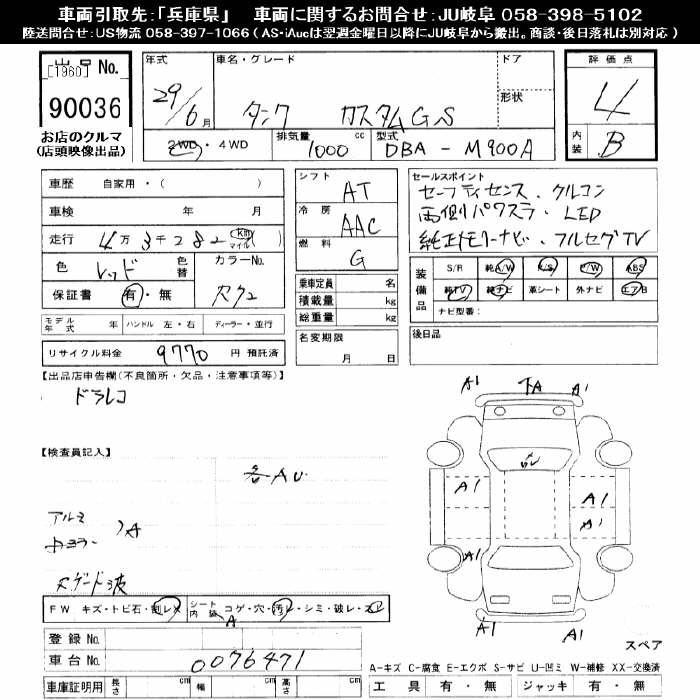 車両引取先:「兵庫県」 車両に関するお問合せ:JU岐阜 058-398-5102
陸送問合せ:US物流 058-397-1066 ( AS・iAucは翌週金曜日以降にJU岐阜から搬出。商談・後日落札は別対応 )
出品 No.
[1960]
90036
お店のクルマ
(店頭映像出品)
年式 29/6月
車名・グレード タンク カスタムG S
ドア
形状
2WD・4WD
排気量 1000 cc
型式 DBA - M900A
評価点 4
内装 B
車歴 自家用・( )
車検 年 月
走行 4万3千282 km マイル
色 レッド 色替 カラーNo.
保証書 有・無
モデル年式 年 ハンドル 左・右 ディーラー・並行
リサイクル料金 9770 円 預託済
シフト AT
冷房 AAC
燃料 G
乗車定員 名
積載量 kg
総重量 kg
名変期限 月 日
セールスポイント
セーフティセンス、クルコン
両側パワスラ・LED
純正メモリーナビ・フルセグTV
装備品 S/R 純A/W P/S P/W ABS
純TV 純ナビ 革シート 外ナビ エアB
ナビ型番:
後日品
【出品店申告欄(不良箇所・欠品・注意事項等)】
ドラレコ
【検査員記入】
各AU
アルミ
ドミラー )A
A1 下A A1
A1
A1
A1
A1
A1 A1
FW キズ・トビ石・割レ× シート内装 コゲ・穴・汚レ・シミ・破レ・スレ
A
登録 No.
車台 No. 0076471
車庫証明用 長さ cm 幅 cm 高さ cm
スペア
A-キズ C-腐食 E-エクボ S-サビ U-凹ミ W-補修 XX-交換済
工具 有・無 ジャッキ 有・無